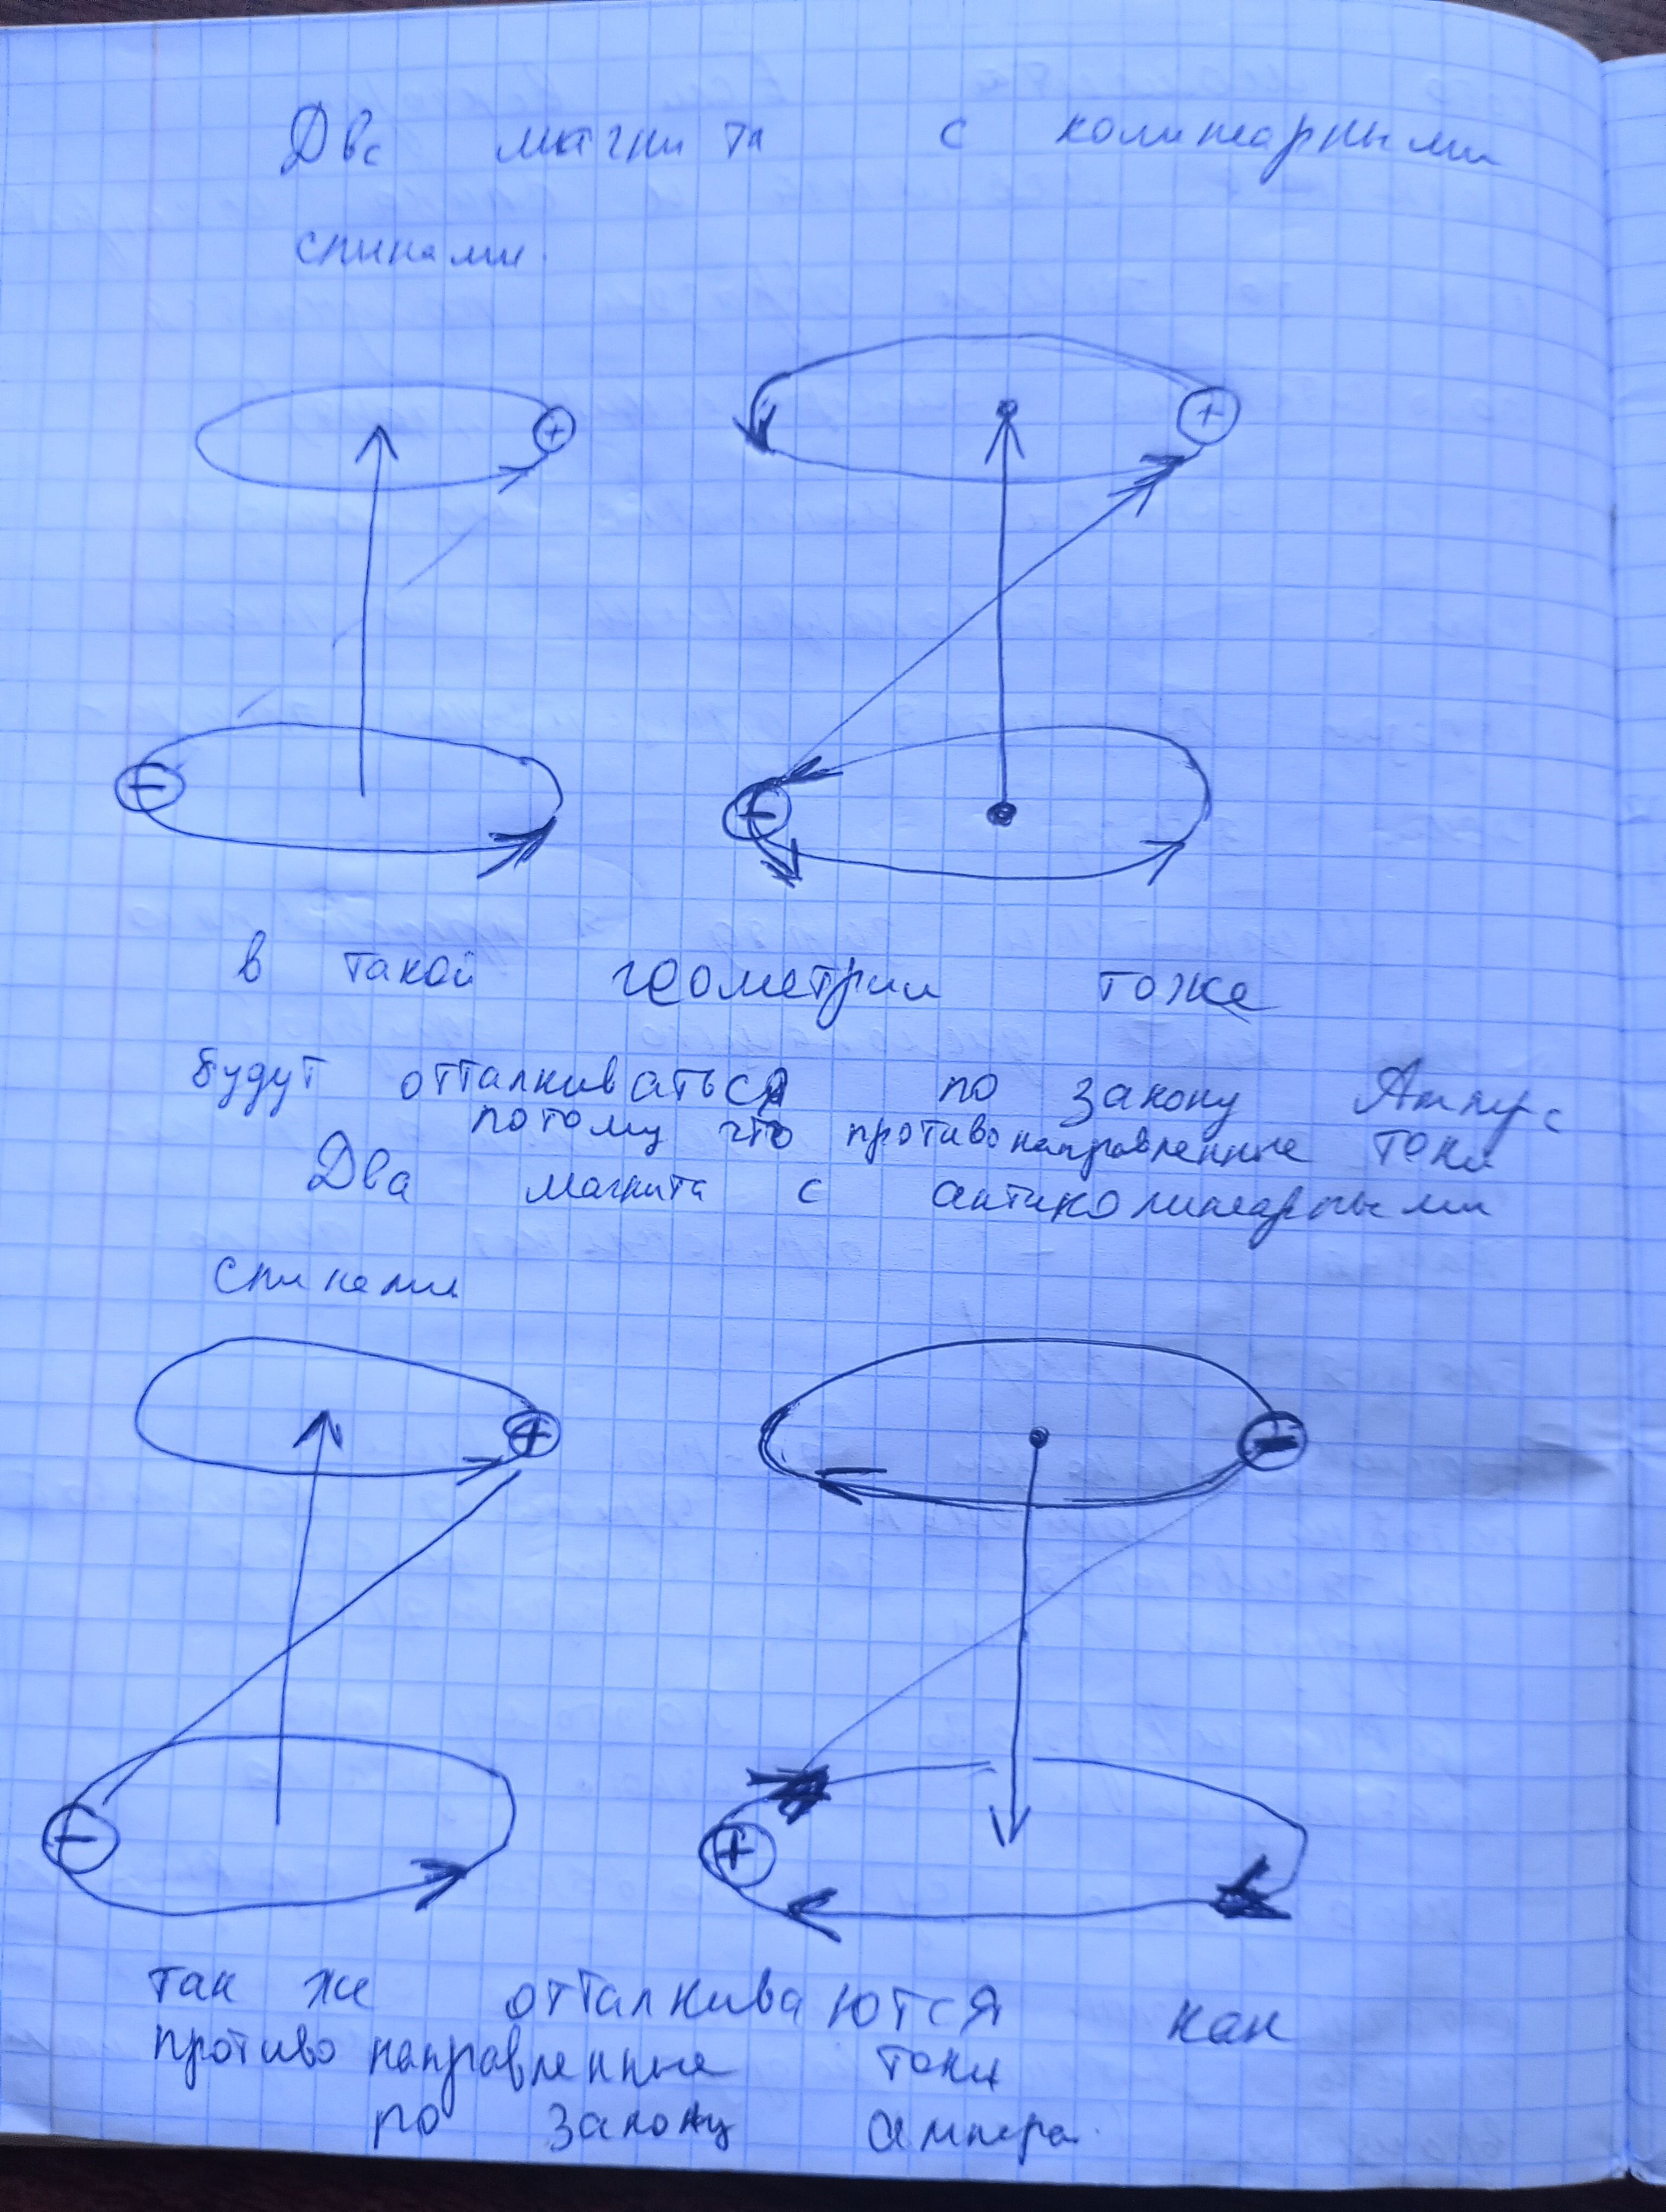 Два магнита с колинеарными
спинами.
+
+
−
−
в такой геометрии тоже
будут отталкиваться по закону
потому что противонаправленные токи
Два магнита с антиколинеарными
спинами
+
−
−
+
так же отталкиваются как
противонаправленные токи
по закону ампера.